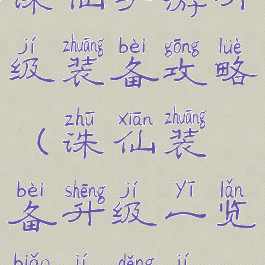 诛仙手游升
jí zhuāng bèi gōng lüè
级装备攻略
zhū xiān zhuāng
(诛仙装
bèi shēng jí yī lǎn
备升级一览
biǎo jí děng jí